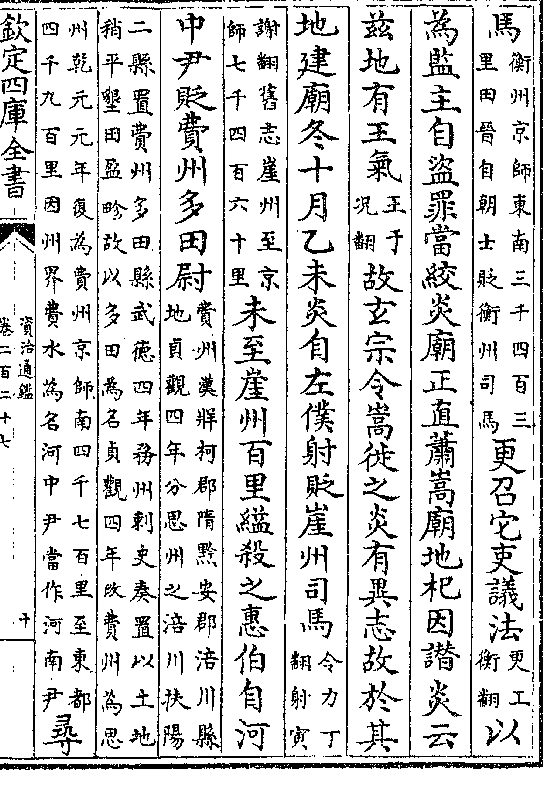 馬衡州京師東南三千四百三
里田晉自朝士貶衡州司馬更召它吏議法更工
衡翻以
為監主自盜罪當絞炎廟正直蕭嵩廟地杞因譖炎云
兹地有王氣王于
况翻故玄宗令嵩徙之炎有異志故於其
地建廟冬十月乙未炎自左僕射貶崖州司馬令力丁
翻射寅
謝翻舊志崖州至京
師七千四百六十里未至崖州百里縊殺之惠伯自河
中尹貶費州多田尉費州漢牂柯郡隋黔安郡涪川縣
地貞觀四年分思州之涪川扶陽
二縣置費州多田縣武德四年務州刺史奏置以土地
稍平墾田盈畛故以多田為名貞觀四年改費州為思
州乾元元年復為費州京師南四千七百里至東都
四千九百里因州界費水為名河中尹當作河南尹尋
欽定四庫全書
資治通鑑
卷二百二十七
十